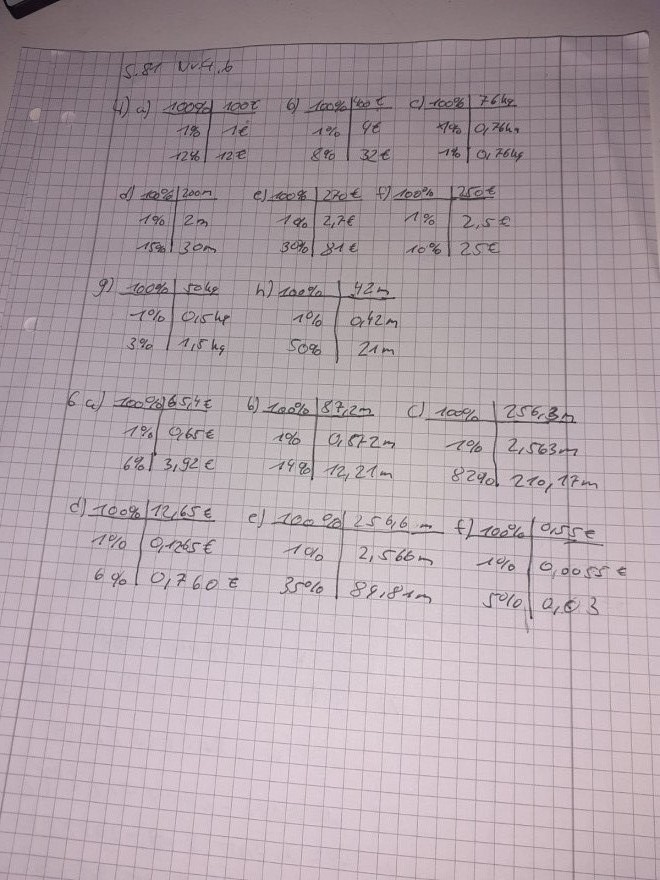 S.81 Nr.4,6
4) a) 100% 100€ b) 100% 400€ c) 100% 76kg
1% 1€ 1% 4€ 1% 0,76kg
12% 12€ 8% 32€ 1% 0,76kg
d) 100% 200m e) 100% 270€ f) 100% 250€
1% 2m 1% 2,7€ 1% 2,5€
15% 30m 30% 81€ 10% 25€
g) 100% 50kg h) 100% 42m
1% 0,5kg 1% 0,42m
3% 1,5kg 50% 21m
6 a) 100% 65,4€ b) 100% 87,2m c) 100% 256,3m
1% 0,65€ 1% 0,872m 1% 2,563m
6% 3,92€ 14% 12,21m 82% 210,17m
d) 100% 12,65€ e) 100% 256,6m f) 100% 0,55€
1% 0,1265€ 1% 2,566m 1% 0,0055€
6% 0,760€ 35% 89,81m 5% 0,03